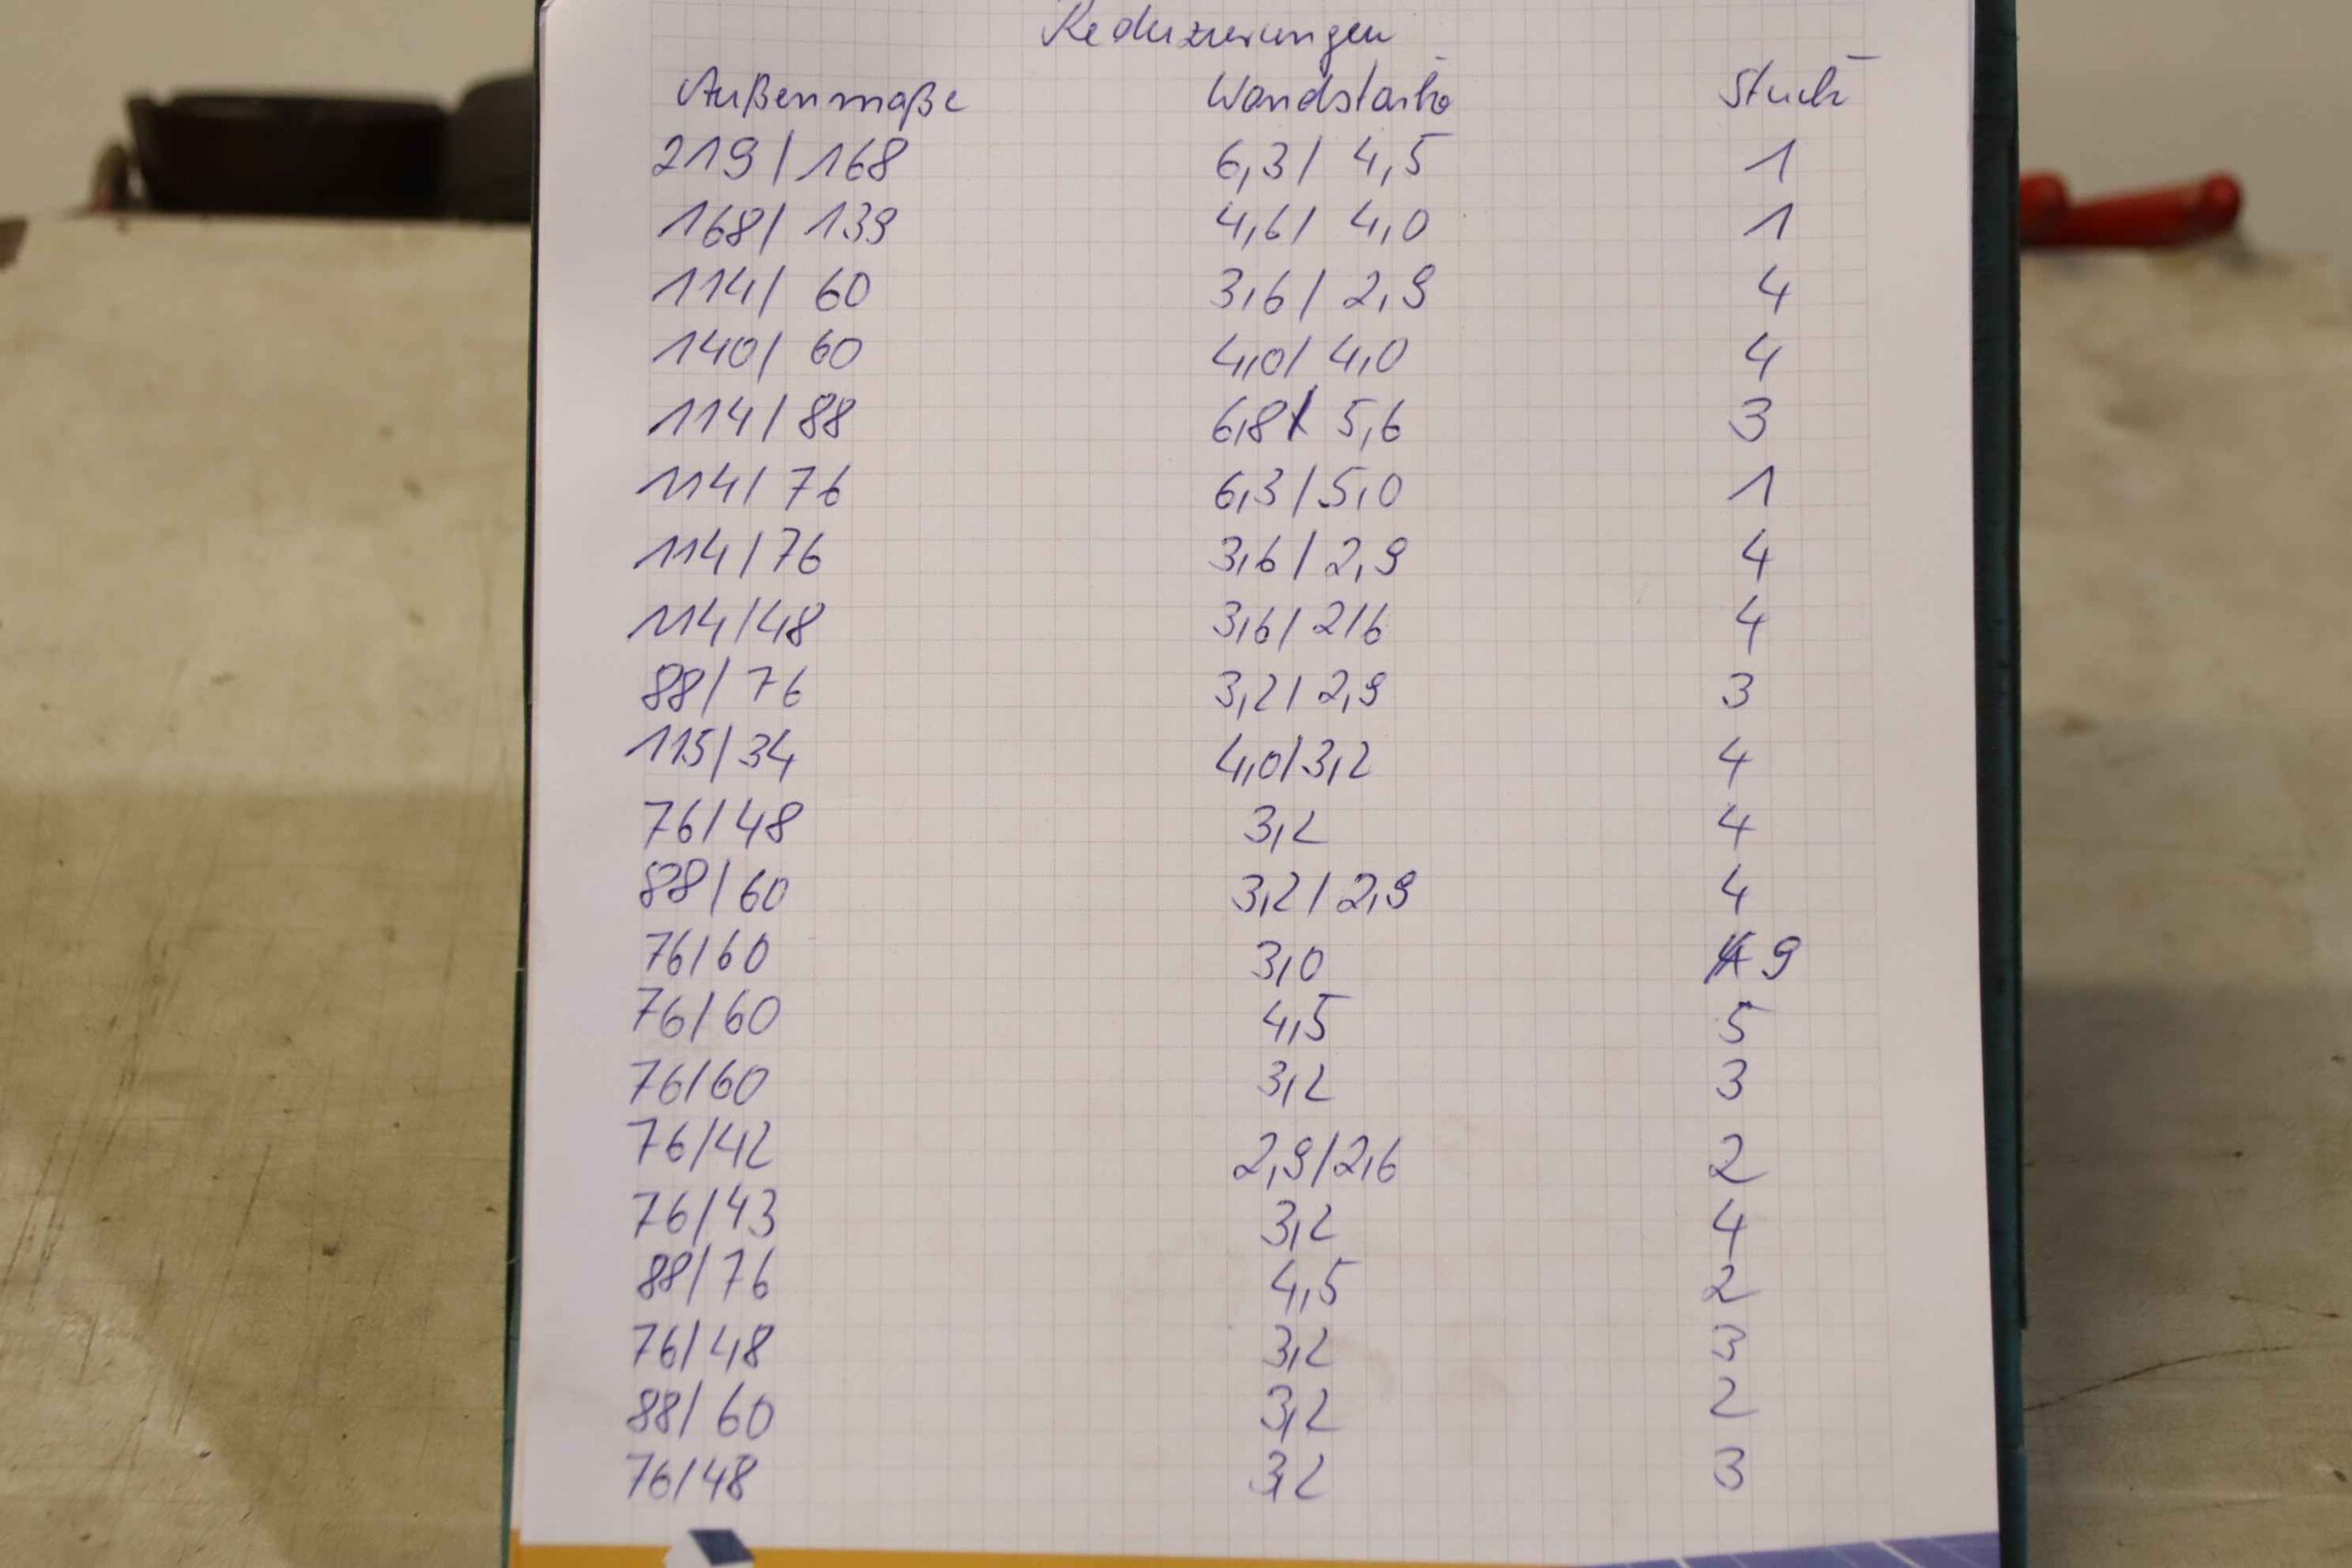 Reduzierungen
Außenmaße Wandstärke Stück
219/168 6,3/4,5 1
168/139 4,6/4,0 1
114/60 3,6/2,9 4
140/60 4,0/4,0 4
114/88 6,8/5,6 3
114/76 6,3/5,0 1
114/76 3,6/2,9 4
114/48 3,6/2,6 4
88/76 3,2/2,9 3
115/34 4,0/3,2 4
76/48 3,2 4
88/60 3,2/2,9 4
76/60 3,0 9
76/60 4,5 5
76/60 3,2 3
76/42 2,9/2,6 2
76/43 3,2 4
88/76 4,5 2
76/48 3,2 3
88/60 3,2 2
76/48 3,2 3